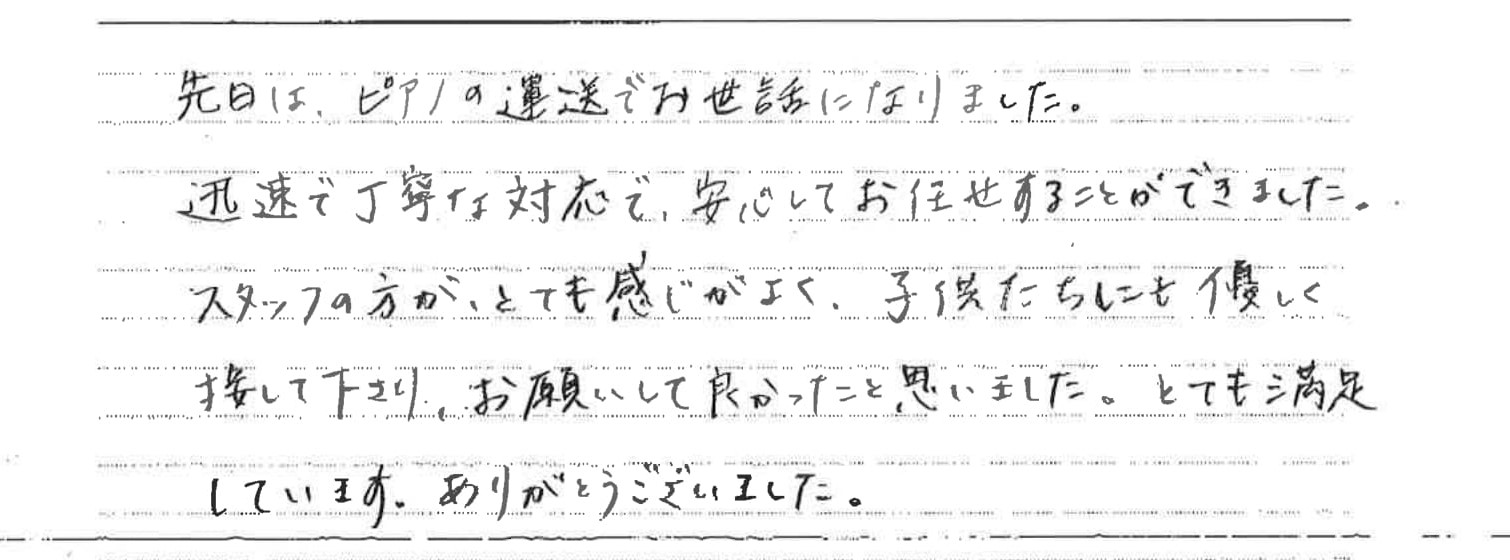 先日は、ピアノの運送でお世話になりました。
迅速で丁寧な対応で、安心してお任せすることができました。
スタッフの方が、とても感じがよく、子供たちにも優しく
接して下さり、お願いして良かったと思いました。とても満足
しています。ありがとうございました。